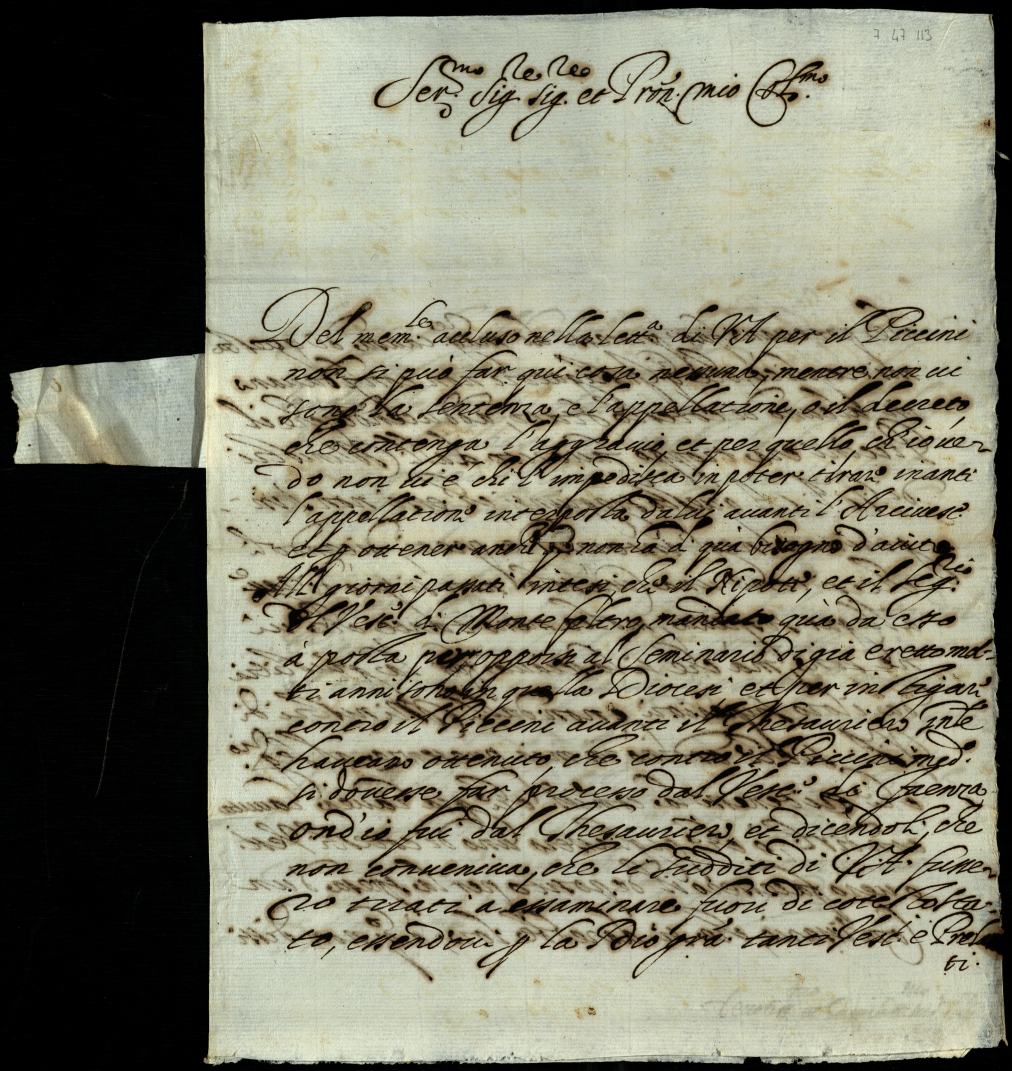 7 47 113
Ser.mo Sig.re Sig.re et Pron. mio Col.mo
Del mem.le acluso nella lett.a di V.A. per il Piccini
non si può far qui cosa nessuna, mentre non vi
sono la sentenza, e l'appellatione, o il decreto
che contenga l'aggravio, et per quello ch'io ve-
do non vi è chi l'impedisca in poter tirar inanti
l'appellatione interposta da lui avanti l'Arcivesc.
et p ottener non di qua bisogno d'aiuto
Alli giorni passati intesi, che il Nipote, et il Seg.rio
di Monte feltro, mandato quà da esso
à posta per opporsi al Seminario di gia eretto mol-
ti anni sono in quella Diocesi et per instigare
contro il Piccini avanti il Thesauriero
havevano ottenuto, che contro il Piccini med.
si dovesse far processo dal Vesc. di Faenza
ond'io fui dal Thesauriero, et dicendoli, che
non conveniva, che li sudditi di V.A. fusse-
ro tirati a essaminare fuori di cotesto sta-
to, essendovi p la Dio gra. tanti Vesc. e Prela
ti.